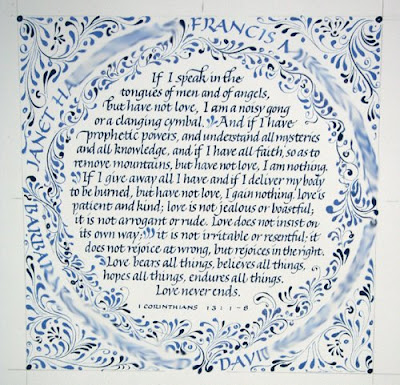 FRANCIS
JANET
If I speak in the
tongues of men and of angels,
but have not love, I am a noisy gong
or a clanging cymbal. And if I have
prophetic powers, and understand all mysteries
and all knowledge, and if I have all faith, so as to
remove mountains, but have not love, I am nothing.
If I give away all I have and if I deliver my body
to be burned, but have not love, I gain nothing. Love is
patient and kind; love is not jealous or boastful;
it is not arrogant or rude. Love does not insist on
its own way; it is not irritable or resentful; it
does not rejoice at wrong, but rejoices in the right.
Love bears all things, believes all things,
hopes all things, endures all things.
Love never ends.
1 CORINTHIANS 13:1-8